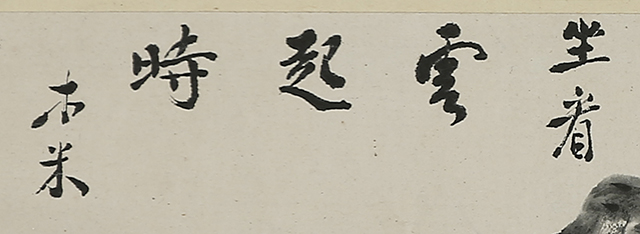 坐看
雲
起
時
木米